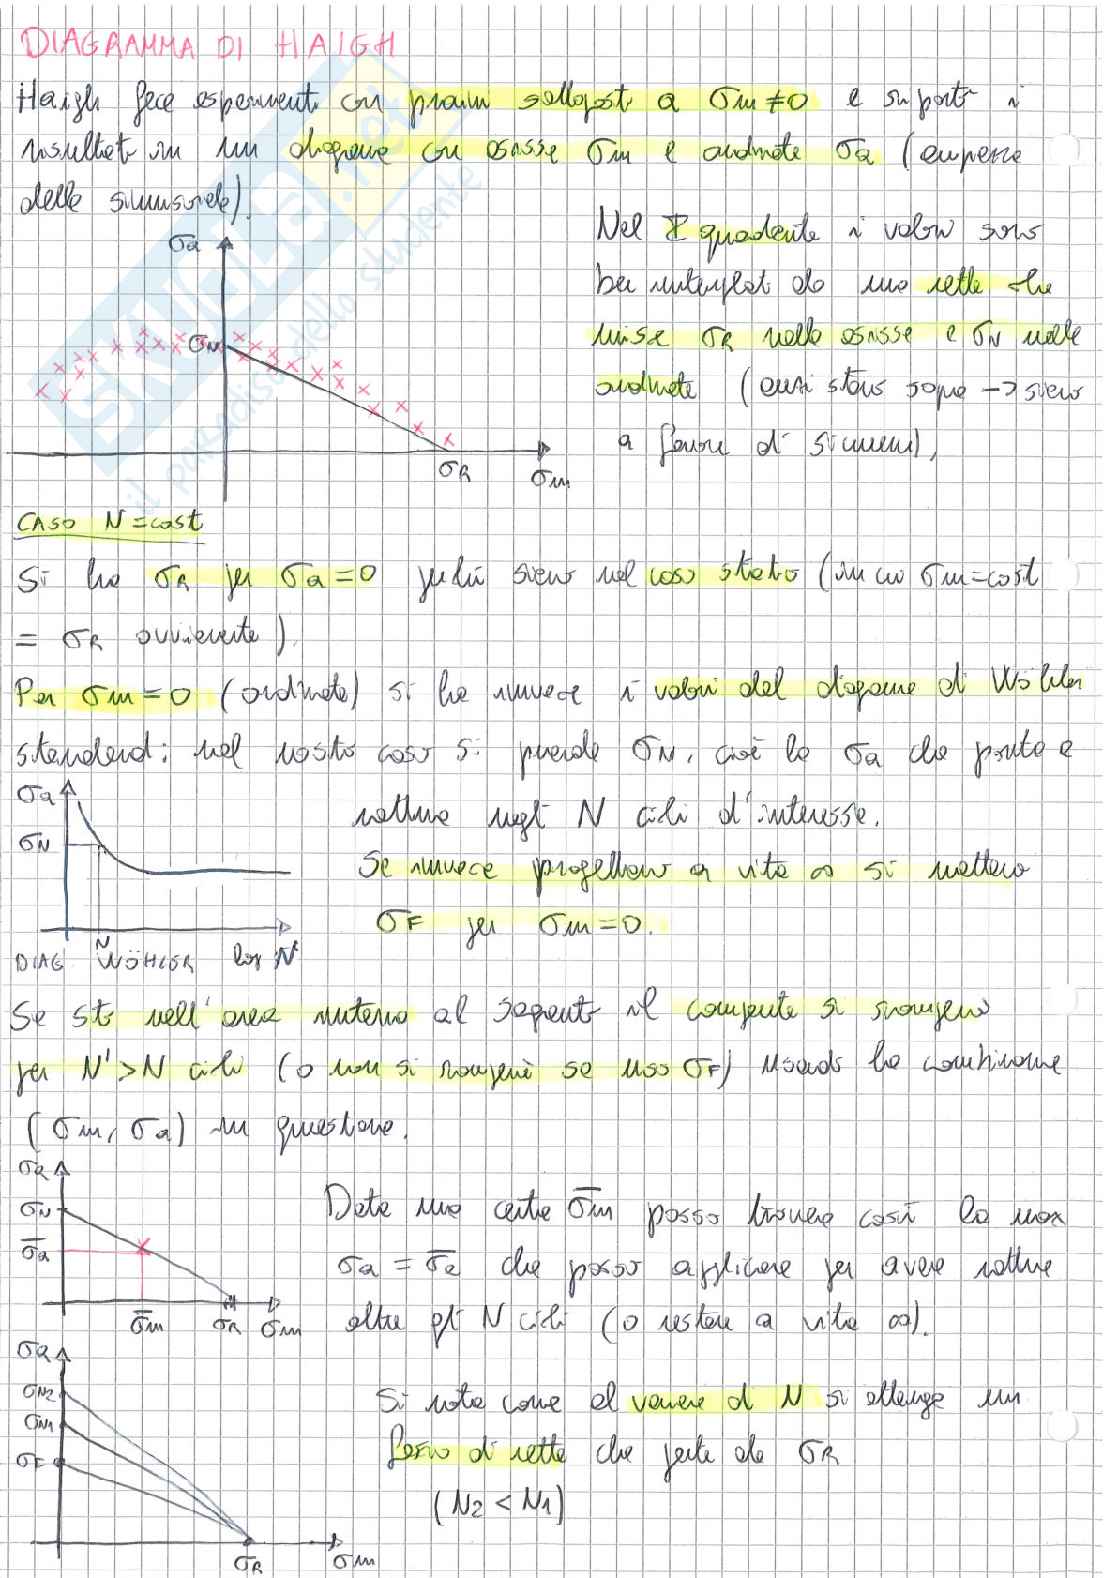 DIAGRAMMA DI HAIGH
Haigh fece esperimenti con provini sottoposti a σm≠0 e riportò i
risultati in un diagramma con ascisse σm e ordinate σa (ampiezza
delle sinusoidi).
Nel I quadrante i valori sono
ben interpolati da una retta che
unisce σR nelle ascisse e σN nelle
ordinate (quasi stanno sopra → siamo
a favore di sicurezza).
σa
σN
σR
σm
CASO N=cost
Si ha σR per σa=0 perché siamo nel caso statico (in cui σm=cost
= σR ovviamente).
Per σm=0 (ordinate) si ha invece i valori del diagramma di Wöhler
standard: nel nostro caso si prende σN, cioè la σa che porta a
rottura negli N cicli d'interesse.
Se invece progettiamo a vita ∞ si mettera
σF per σm=0.
σa
σN
N
DIAG WÖHLER log N
Se sto nell'area interna al segmento il componente si romperà
per N'>N cicli (o non si romperà se uso σF) usando la combinazione
(σm, σa) in questione.
σa
σN
σ̅a
σ̅m
σR
σm
Data una certa σ̅m posso trovare così la max
σa = σ̅a che posso applicare per avere rottura
oltre gli N cicli (o restare a vita ∞).
σa
σN2
σN1
σF
σR
σm
Si nota come al variare di N si ottenga un
fascio di rette che parte da σR
(N2 < N1)
SKUOLA.net
il paradiso dello studente